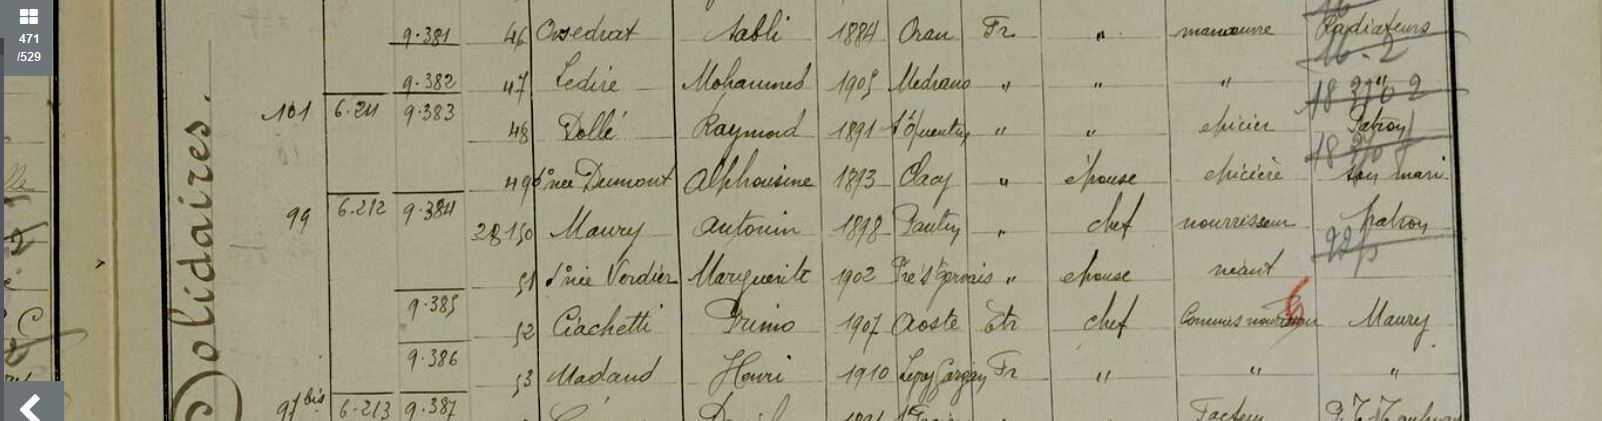 471
/529
Solidaires.
9.381 46 Sabli 1884 Oran Fr " manœuvre Radiateurs
16-2
9.382 47 Ledire Mohammed 1905 " " " "
18
101 6.211 9.383 48 Dollé Raymond 1891 St Quentin " " épicier Patron
18
49 dº née Dumont Alphonsine 1893 Clacy " épouse épicière son mari
99 6.212 9.384 28150 Maury Antonin 1898 " chef nourrisseur patron
51 dº née Verdier Marguerite 1902 Pré St Gervais " épouse néant
9.385 52 Ciachetti Primo 1907 Aoste Etr chef Commis Maury
9.386 53 Madaud Henri 1910 Fr " " "
97 bis 6.213 9.387 Facteur P.T.T.